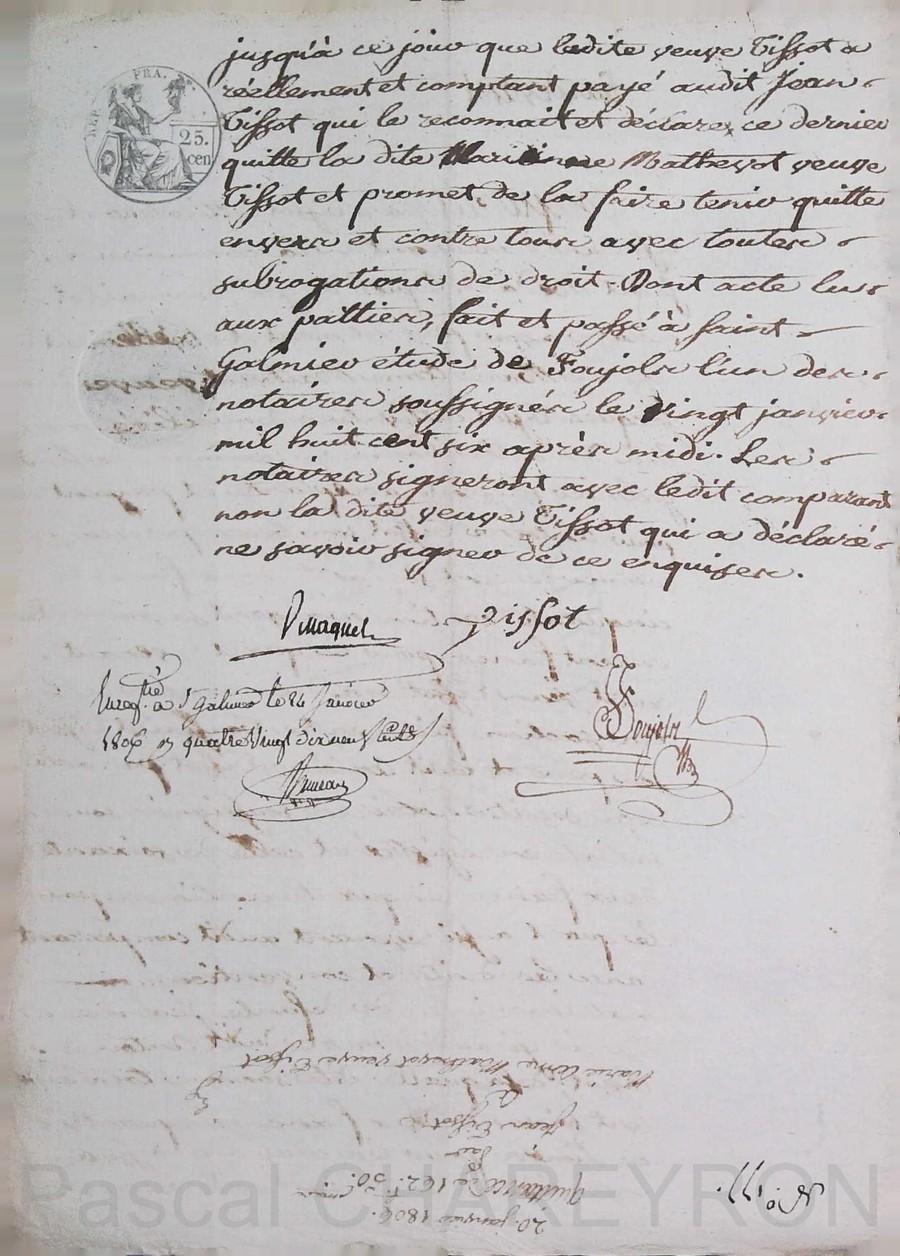 jusqu'à ce jour que ladite veuve Tissot a
réellement et comptant payé audit Jean
Tissot qui le reconnait et déclare, ce dernier
quitte la dite Marianne Mathevot veuve
Tissot et promet de la faire tenir quitte
envers et contre tous avec toutes
subrogations de droit. Dont acte lu
aux parties, fait et passé à Saint
Galmier étude de Foujols l'un des
notaires soussignés le vingt janvier
mil huit cent six après midi. Les
notaires signeront avec ledit comparant
non la dite veuve Tissot qui a déclaré
ne savoir signer de ce enquises.
REP. FRA.
25.
cen
Tissot
Enreg.tré à St Galmier le 24 Janvier
1806 quatre vingt dix neuf
Foujols
20. janvier 1806.
Quittance de 162. 50.
par
Jean Tissot
à
Marianne Mathevot veuve Tissot
No. 111.
Pascal CHAREYRON